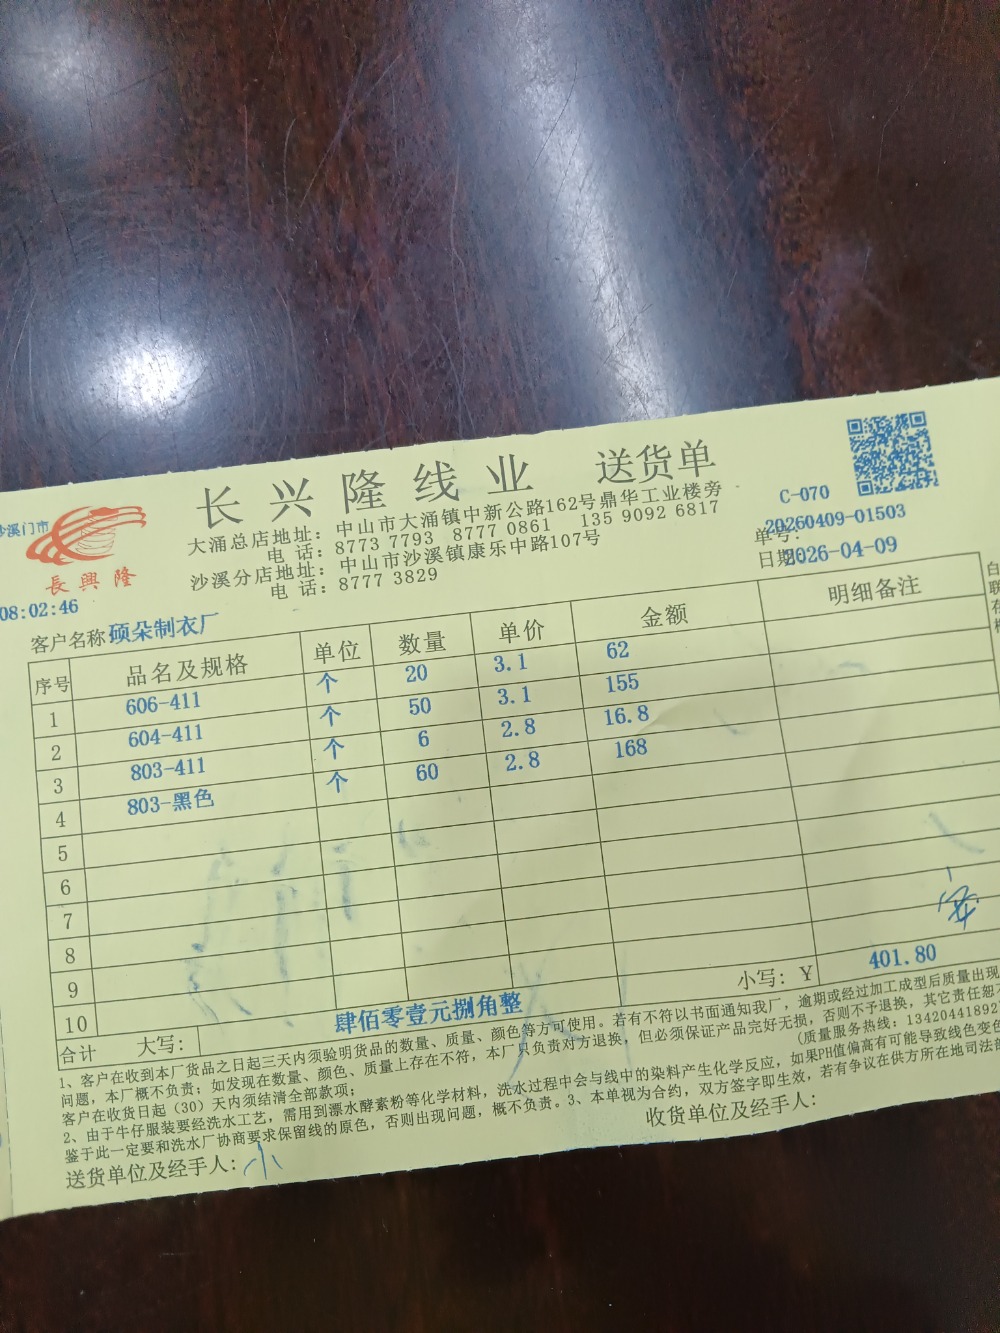 长兴隆线业 送货单
大涌总店地址：中山市大涌镇中新公路162号鼎华工业楼旁
电 话：8773 7793 8777 0861 135 9092 6817
沙溪分店地址：中山市沙溪镇康乐中路107号
电 话：8777 3829
沙溪门市
長興隆
08:02:46
C-070
单号：20260409-01503
日期：2026-04-09
客户名称 硕朵制衣厂
序号 品名及规格 单位 数量 单价 金额 明细备注
1 606-411 个 20 3.1 62
2 604-411 个 50 3.1 155
3 803-411 个 6 2.8 16.8
4 803-黑色 个 60 2.8 168
5
6
7
8
9
10
合计 大写： 肆佰零壹元捌角整 小写：Y 401.80
1、客户在收到本厂货品之日起三天内须验明货品的数量、质量、颜色等方可使用。若有不符以书面通知我厂，逾期或经过加工成型后质量出现
问题，本厂概不负责；如发现在数量、颜色、质量上存在不符，本厂只负责对方退换，但必须保证产品完好无损，否则不予退换，其它责任恕不
客户在收货日起（30）天内须结清全部款项； （质量服务热线：1342044189
2、由于牛仔服装要经洗水工艺，需用到漂水酵素粉等化学材料，洗水过程中会与线中的染料产生化学反应，如果PH值偏高有可能导致线色变色
鉴于此一定要和洗水厂协商要求保留线的原色，否则出现问题，概不负责。3、本单视为合约，双方签字即生效，若有争议在供方所在地司法部
送货单位及经手人： 收货单位及经手人：